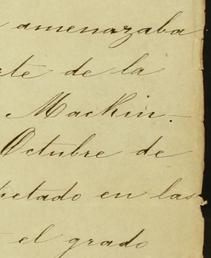 amenazaba
rte de la
Mackin.-
Octubre de
ctado en las
el grado